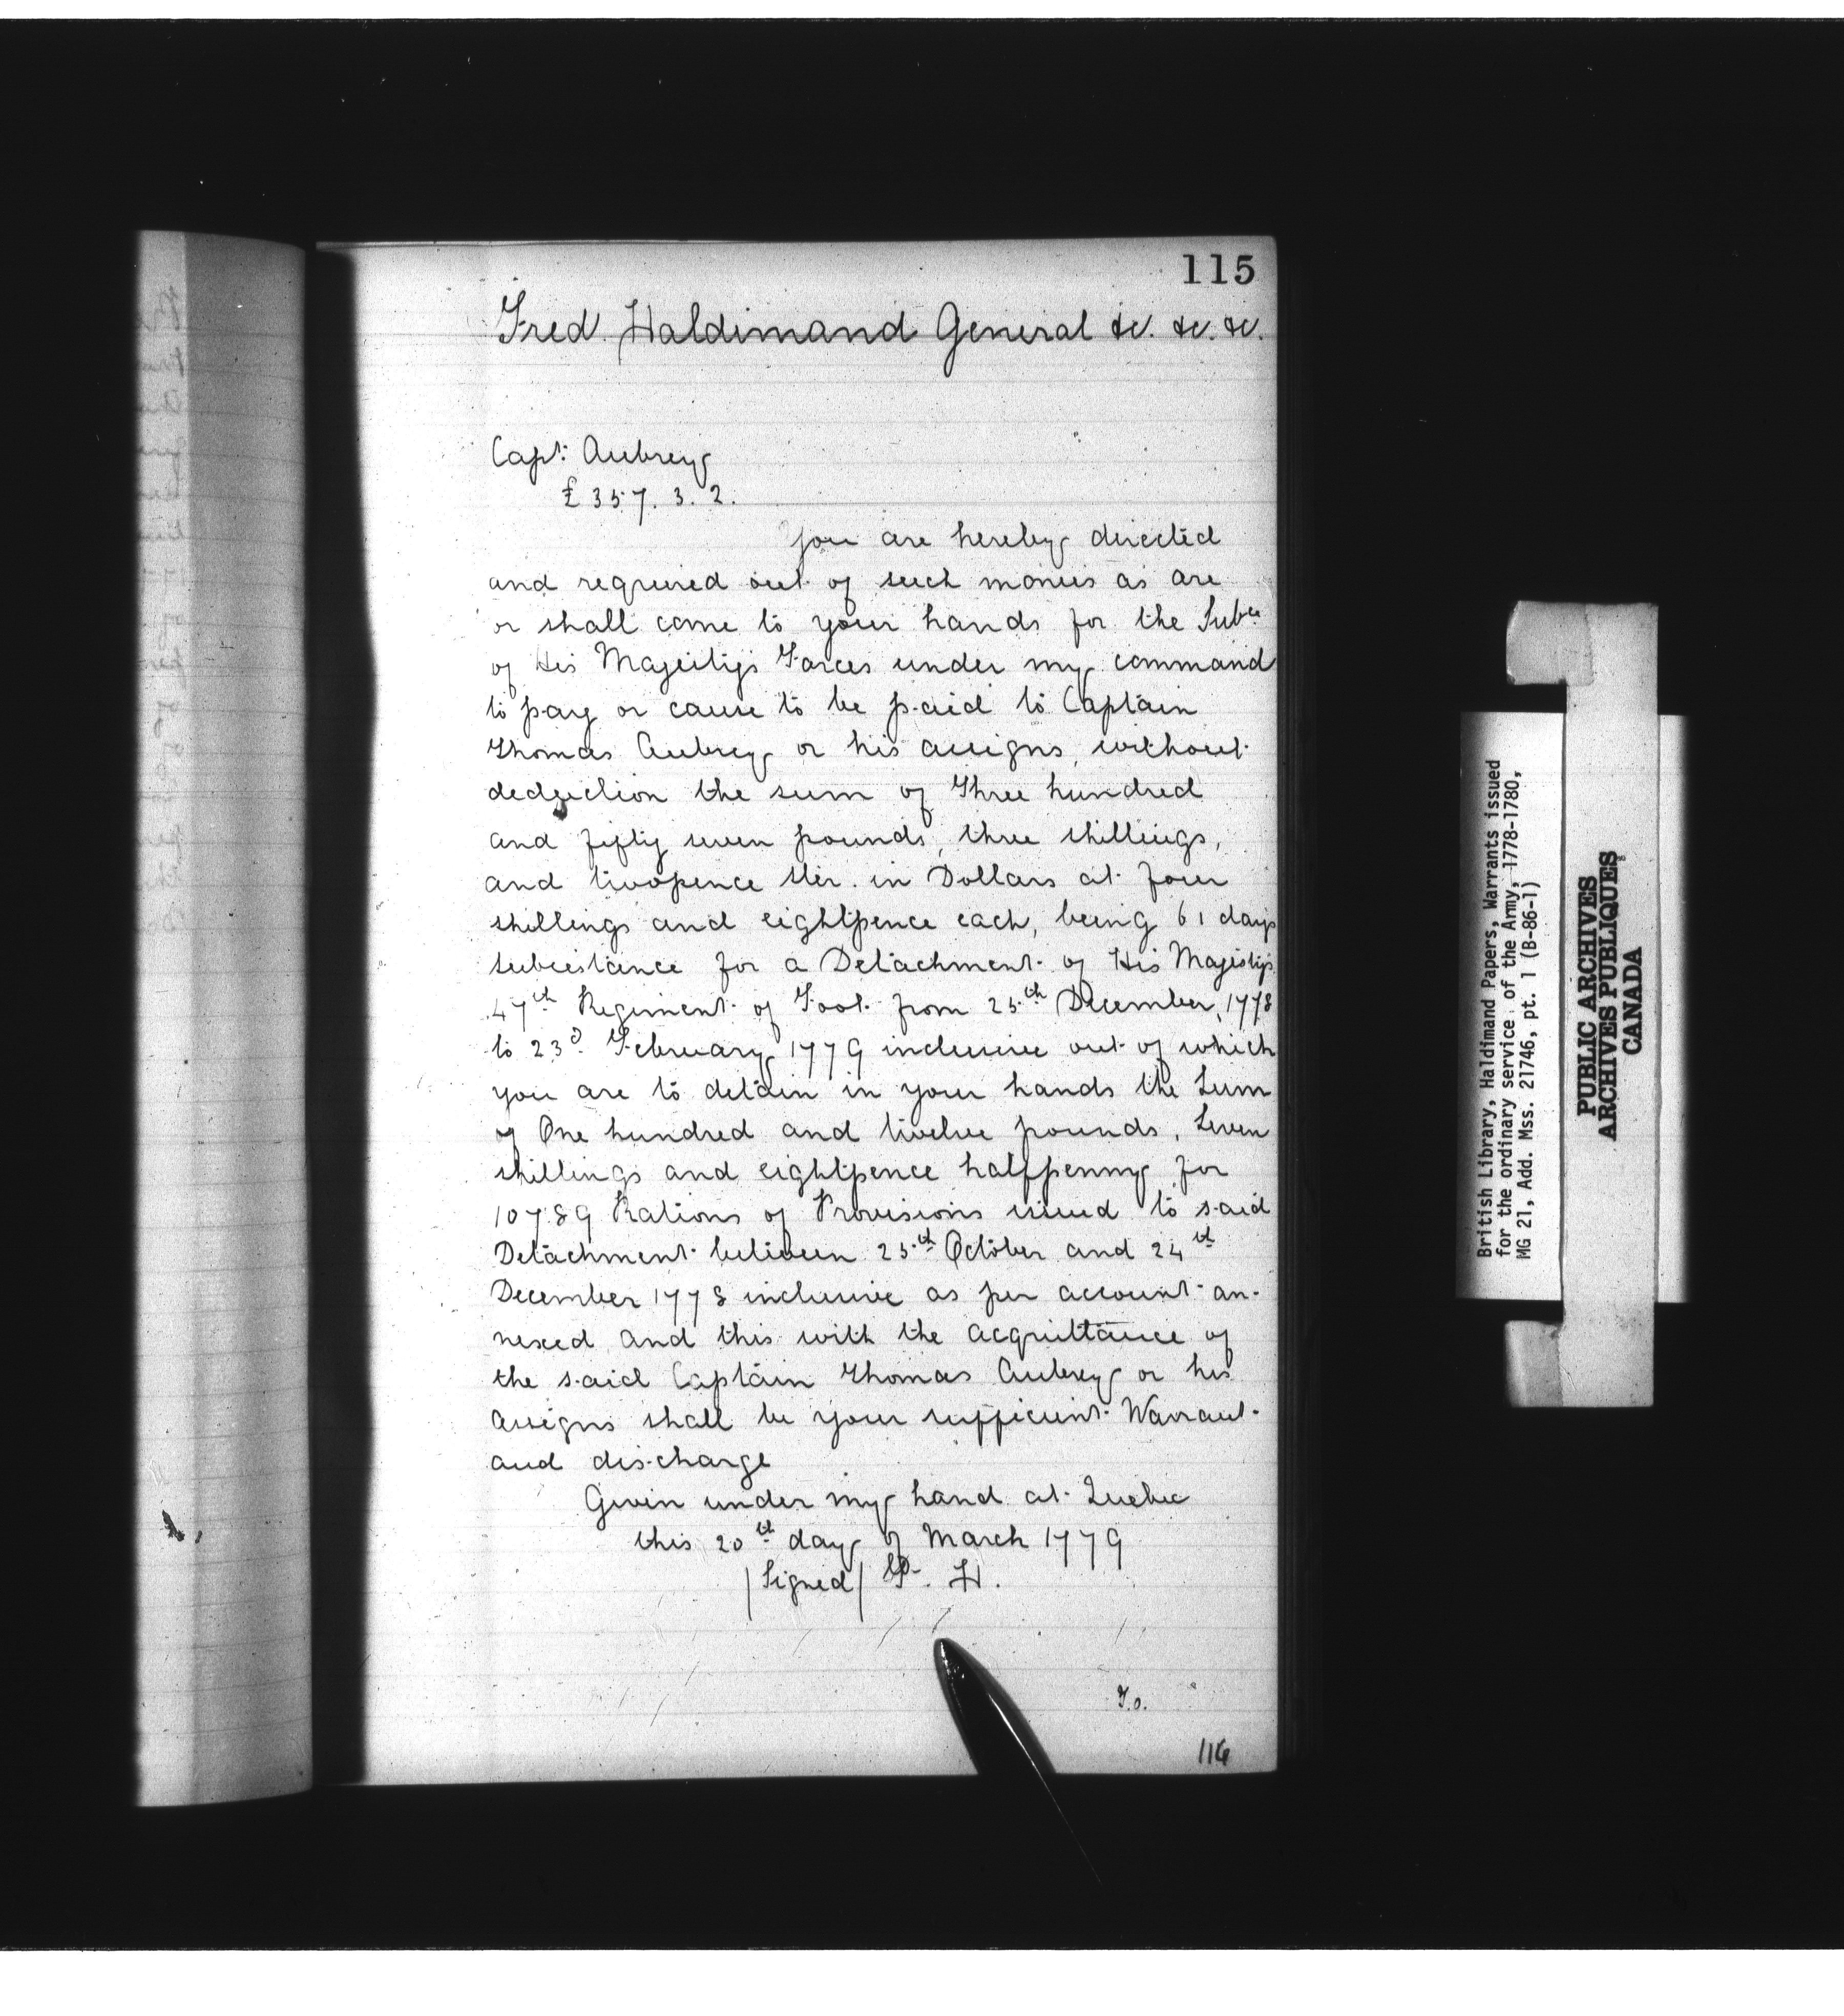 115
Fred. Haldimand General &c. &c. &c.
Capt: Aubrey
£357. 3. 2.
You are hereby directed
and required out of such monies as are
or shall come to your hands for the Subce
of His Majesty's Forces under my command
to pay or cause to be paid to Captain
Thomas Aubrey or his assigns, without
deduction the sum of Three hundred
and fifty seven pounds, three shillings,
and twopence Ster. in Dollars at four
shillings and eightpence each, being 61 days
subsistance for a Detachment of His Majesty's
47th Regiment of Foot from 25th December, 1778
to 23d February 1779 inclusive out of which
you are to detain in your hands the Sum
of One hundred and twelve pounds, Seven
shillings and eightpence halfpenny for
10789 Rations of Provisions issued to said
Detachment between 25th October and 24th
December 1778 inclusive as per account an-
nexed and this with the acquittance of
the said Captain Thomas Aubrey or his
Assigns shall be your sufficient Warrant
and discharge
Given under my hand at Quebec
this 20th day of March 1779
/Signed/ F. H.
To.
116
British Library, Haldimand Papers, Warrants issued
for the ordinary service of the Army, 1778-1780,
MG 21, Add. Mss. 21746, pt. 1 (B-86-1)
PUBLIC ARCHIVES
ARCHIVES PUBLIQUES
CANADA